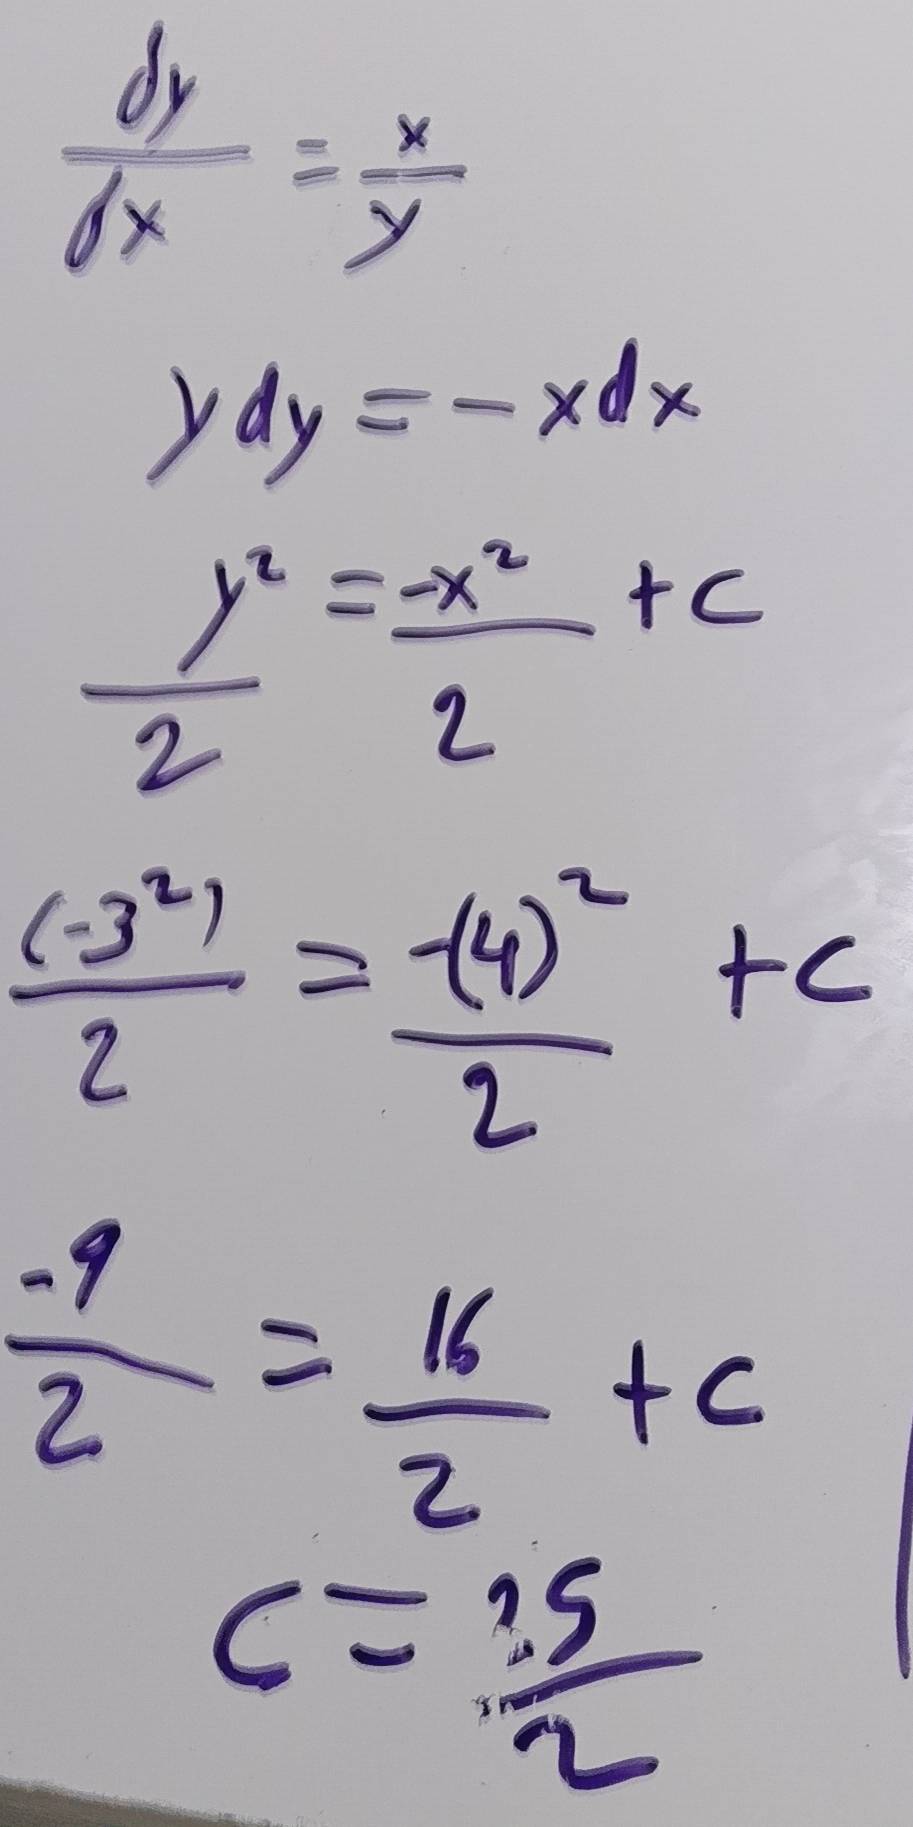 dy/dx = x/y
y dy = - x dx
y²/2 = -x²/2 + c
(-3²)/2 = -(4)²/2 + c
-9/2 = 16/2 + c
c = 25/2